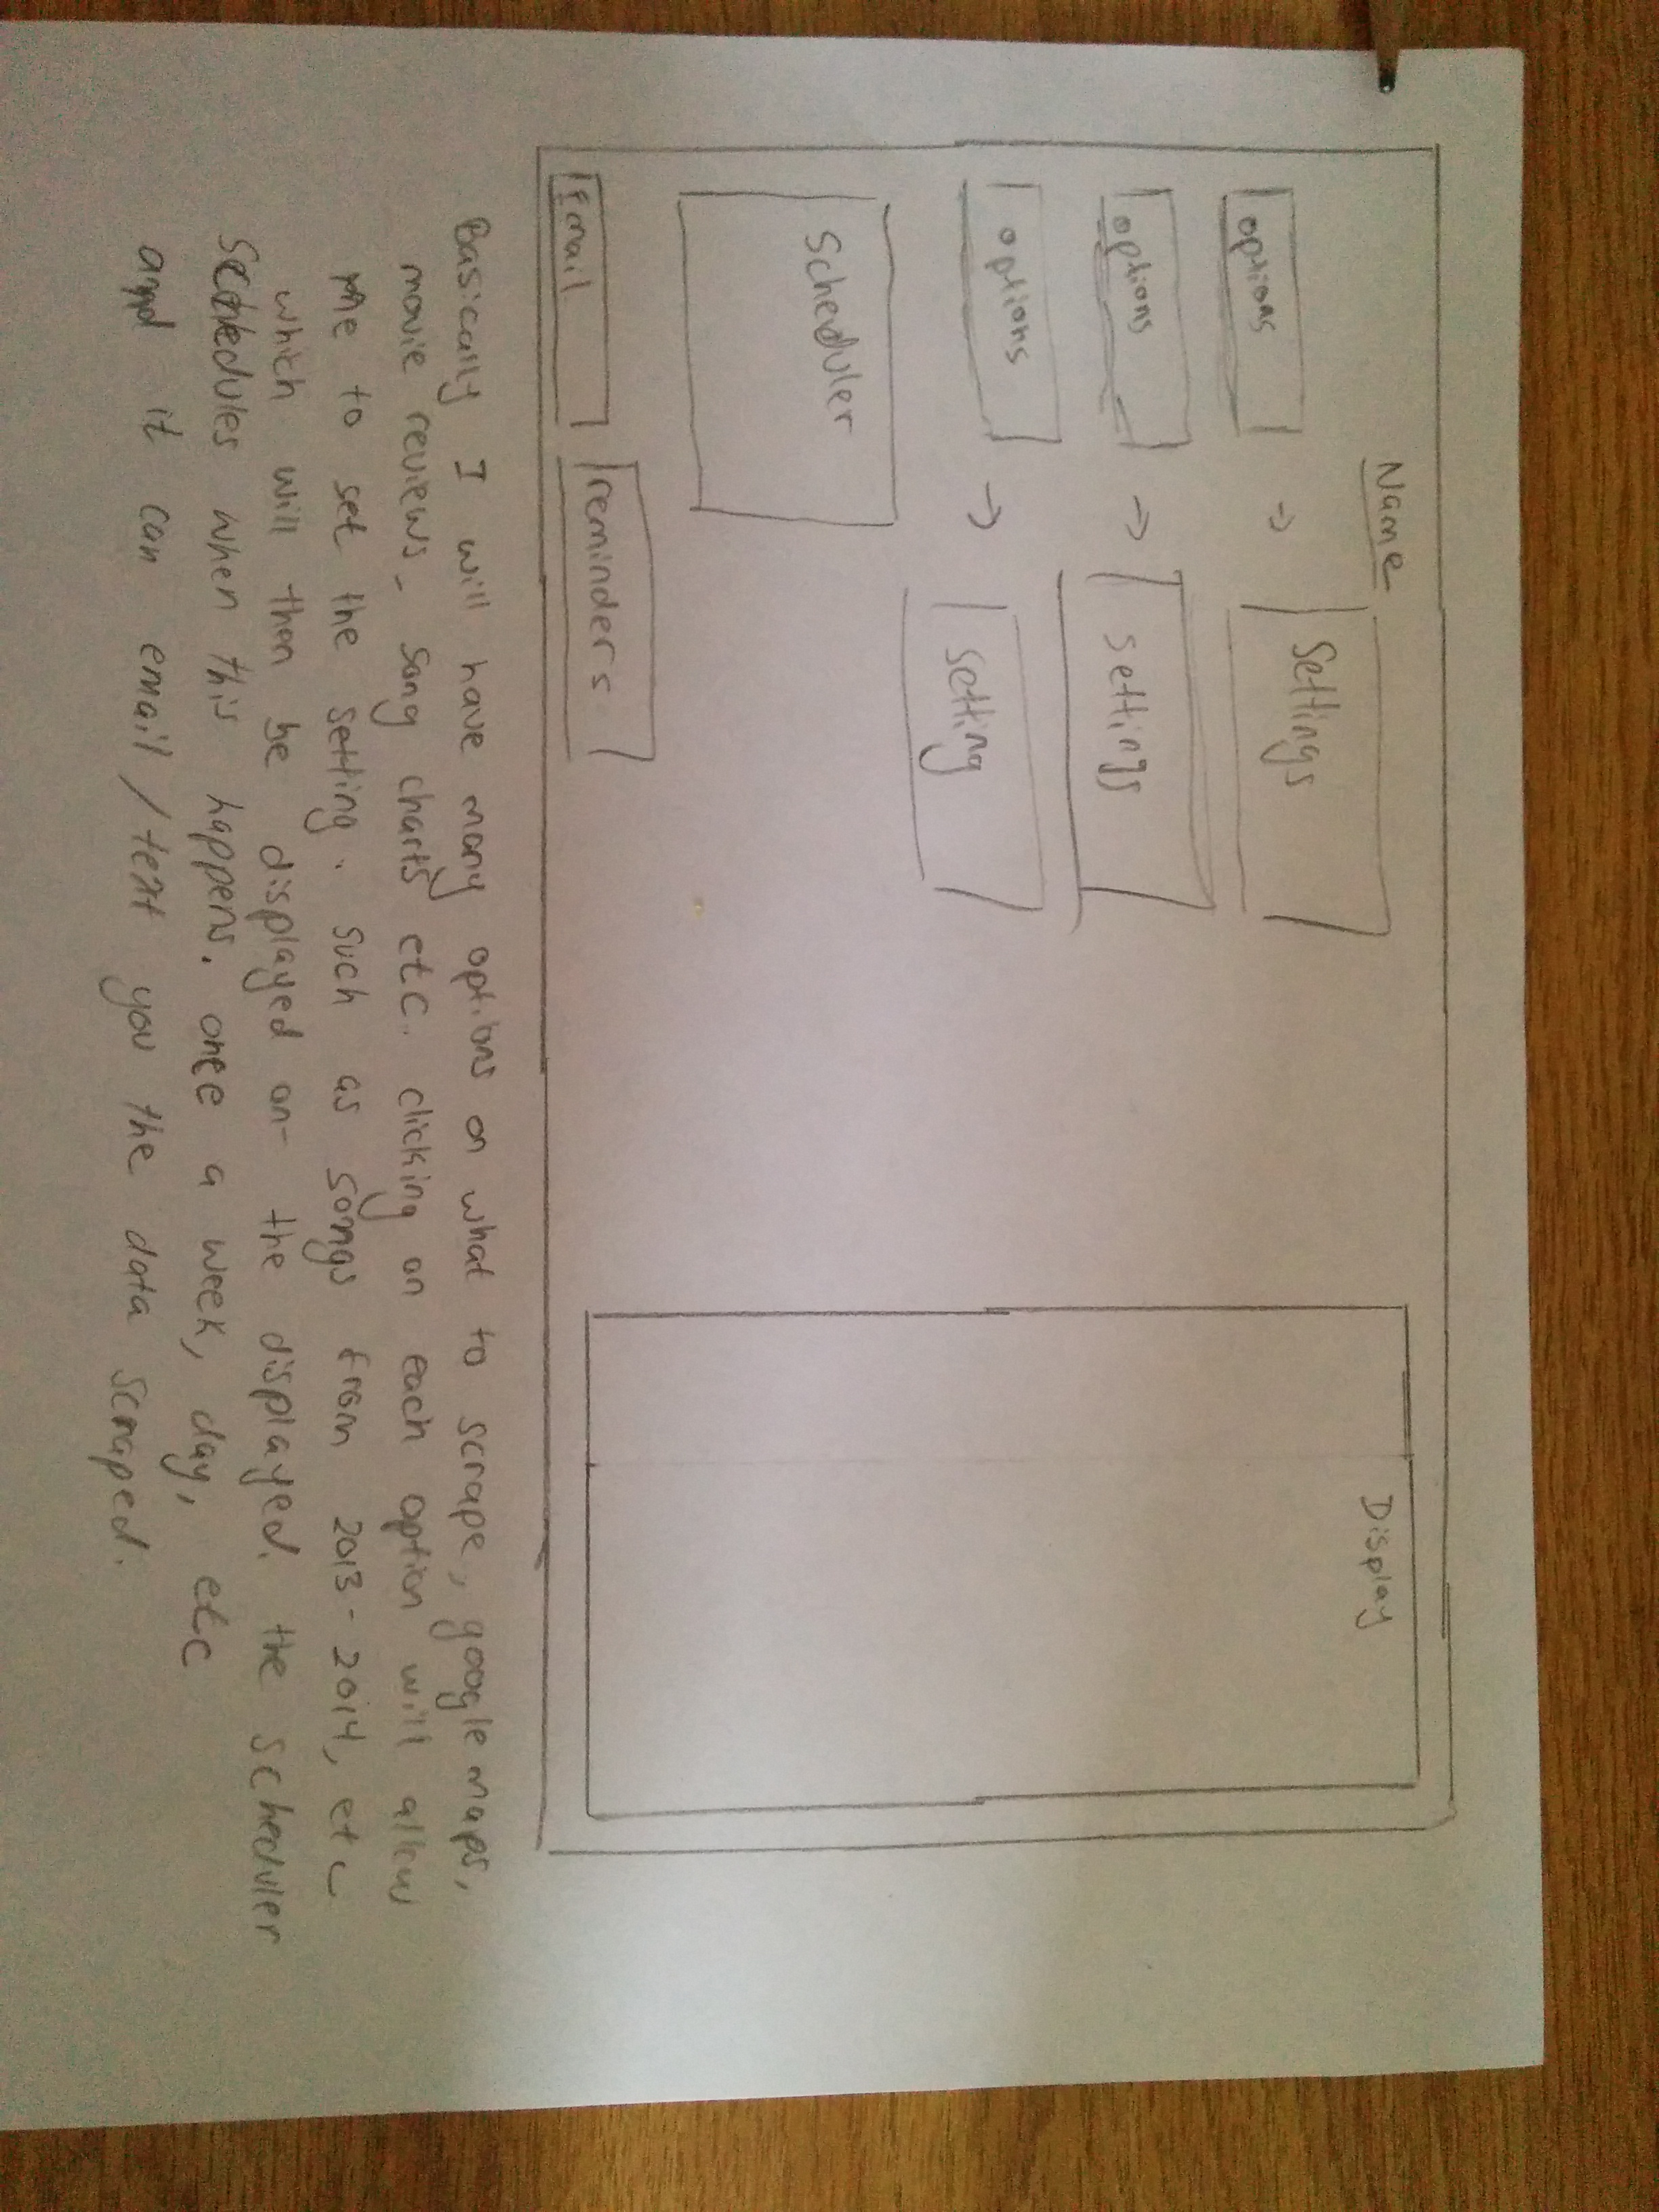 Name
Display
options -> Settings
options -> settings
options -> setting
Scheduler
Email
reminders
Basically I will have many options on what to scrape, google maps,
movie reviews, song charts etc. clicking on each option will allow
me to set the setting. such as songs from 2013-2014, etc
which will then be displayed on- the displayed. the scheduler
Schedules when this happens. once a week, day, etc
and it can email/text you the data scraped.